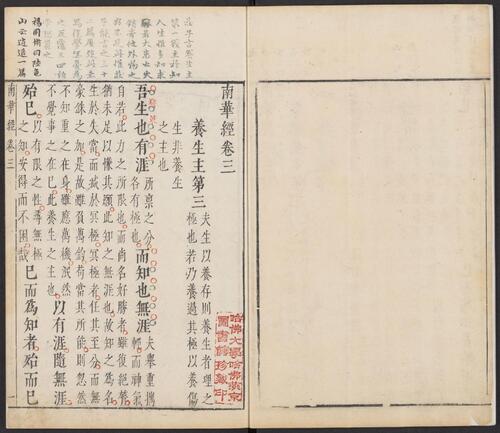 南華經卷三
養生主第三
夫生以養存則養生者理之
極也若乃養過其極以養傷
生非養生
之主也
吾生也有涯 所稟之分 各有極也 而知也無涯 夫舉重攜 輕而神氣
自若此力之所限也而尚名好勝者雖復絕膂
猶未足以慊其願此知之無涯也故知之為名
生於失當而滅於冥極冥極者任其至分而無
毫銖之加是故雖負萬鈞苟當其所能則忽然
不知重之在身雖應萬機泯然
不覺事之在己此養生之主也 以有涯隨無涯
殆已 以有限之性尋無極 之知安得而不困哉 已而爲知者殆而已
南華經 卷三 一
山云逍遥一篇
哈佛大學哈佛燕京
圖書館珍藏印